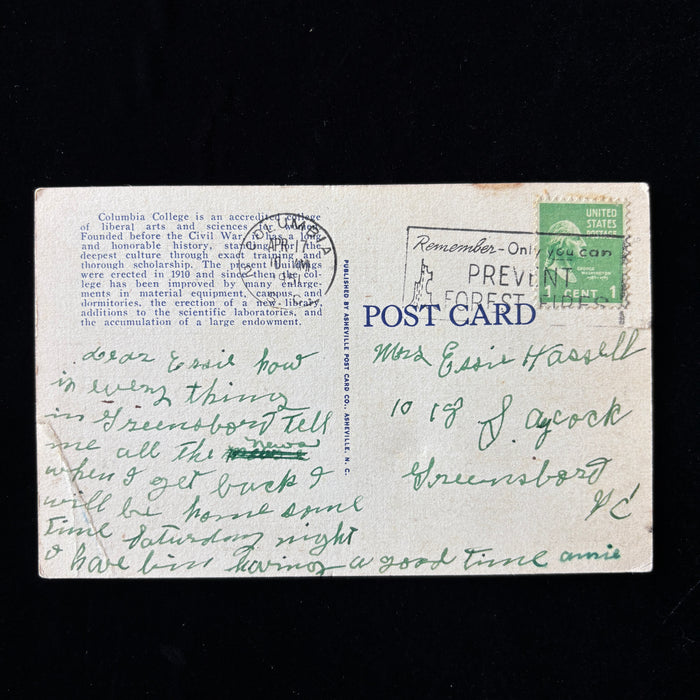 Columbia College is an accredited college
of liberal arts and sciences for
Founded before the Civil War, it has a long
and honorable history, standing for the
deepest culture through exact training and
thorough scholarship. The present buildings
were erected in 1910 and since then the col-
lege has been improved by many enlarge-
ments in material equipment, campus, and
dormitories, the erection of a new library,
additions to the scientific laboratories, and
the accumulation of a large endowment.
COLUMBIA
APR 17
PUBLISHED BY ASHEVILLE POST CARD CO., ASHEVILLE, N. C.
Remember-Only you can
PREVENT
FOREST FIRES
UNITED
STATES
POSTAGE
GEORGE
WASHINGTON
1 CENT 1
POST CARD
dear Essie how
is every thing
in Greensboro tell
me all the news
when I get back I
will be home some
time Saturday night
I have bin having a good time annie
Mrs Essie Hassell
1018 S. aycock
Greensboro
NC